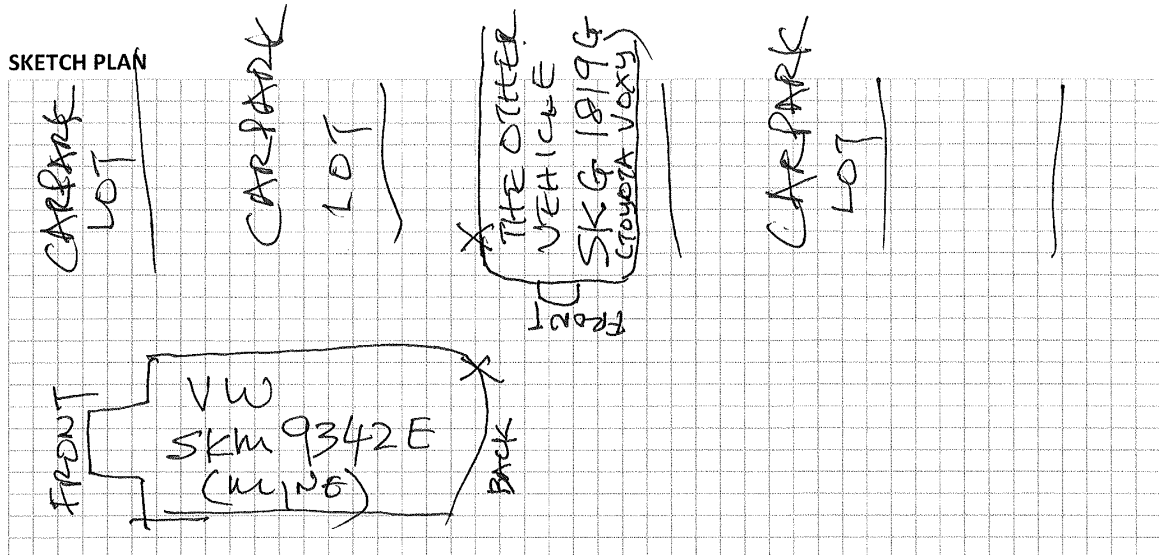 SKETCH PLAN
CARPARK
LOT
CARPARK
LOT
THE OTHER
VEHICLE
SKG 1819G
(TOYOTA VOXY)
CARPARK
LOT
FRONT
FRONT
VW
SKM 9342E
(MINE)
BACK